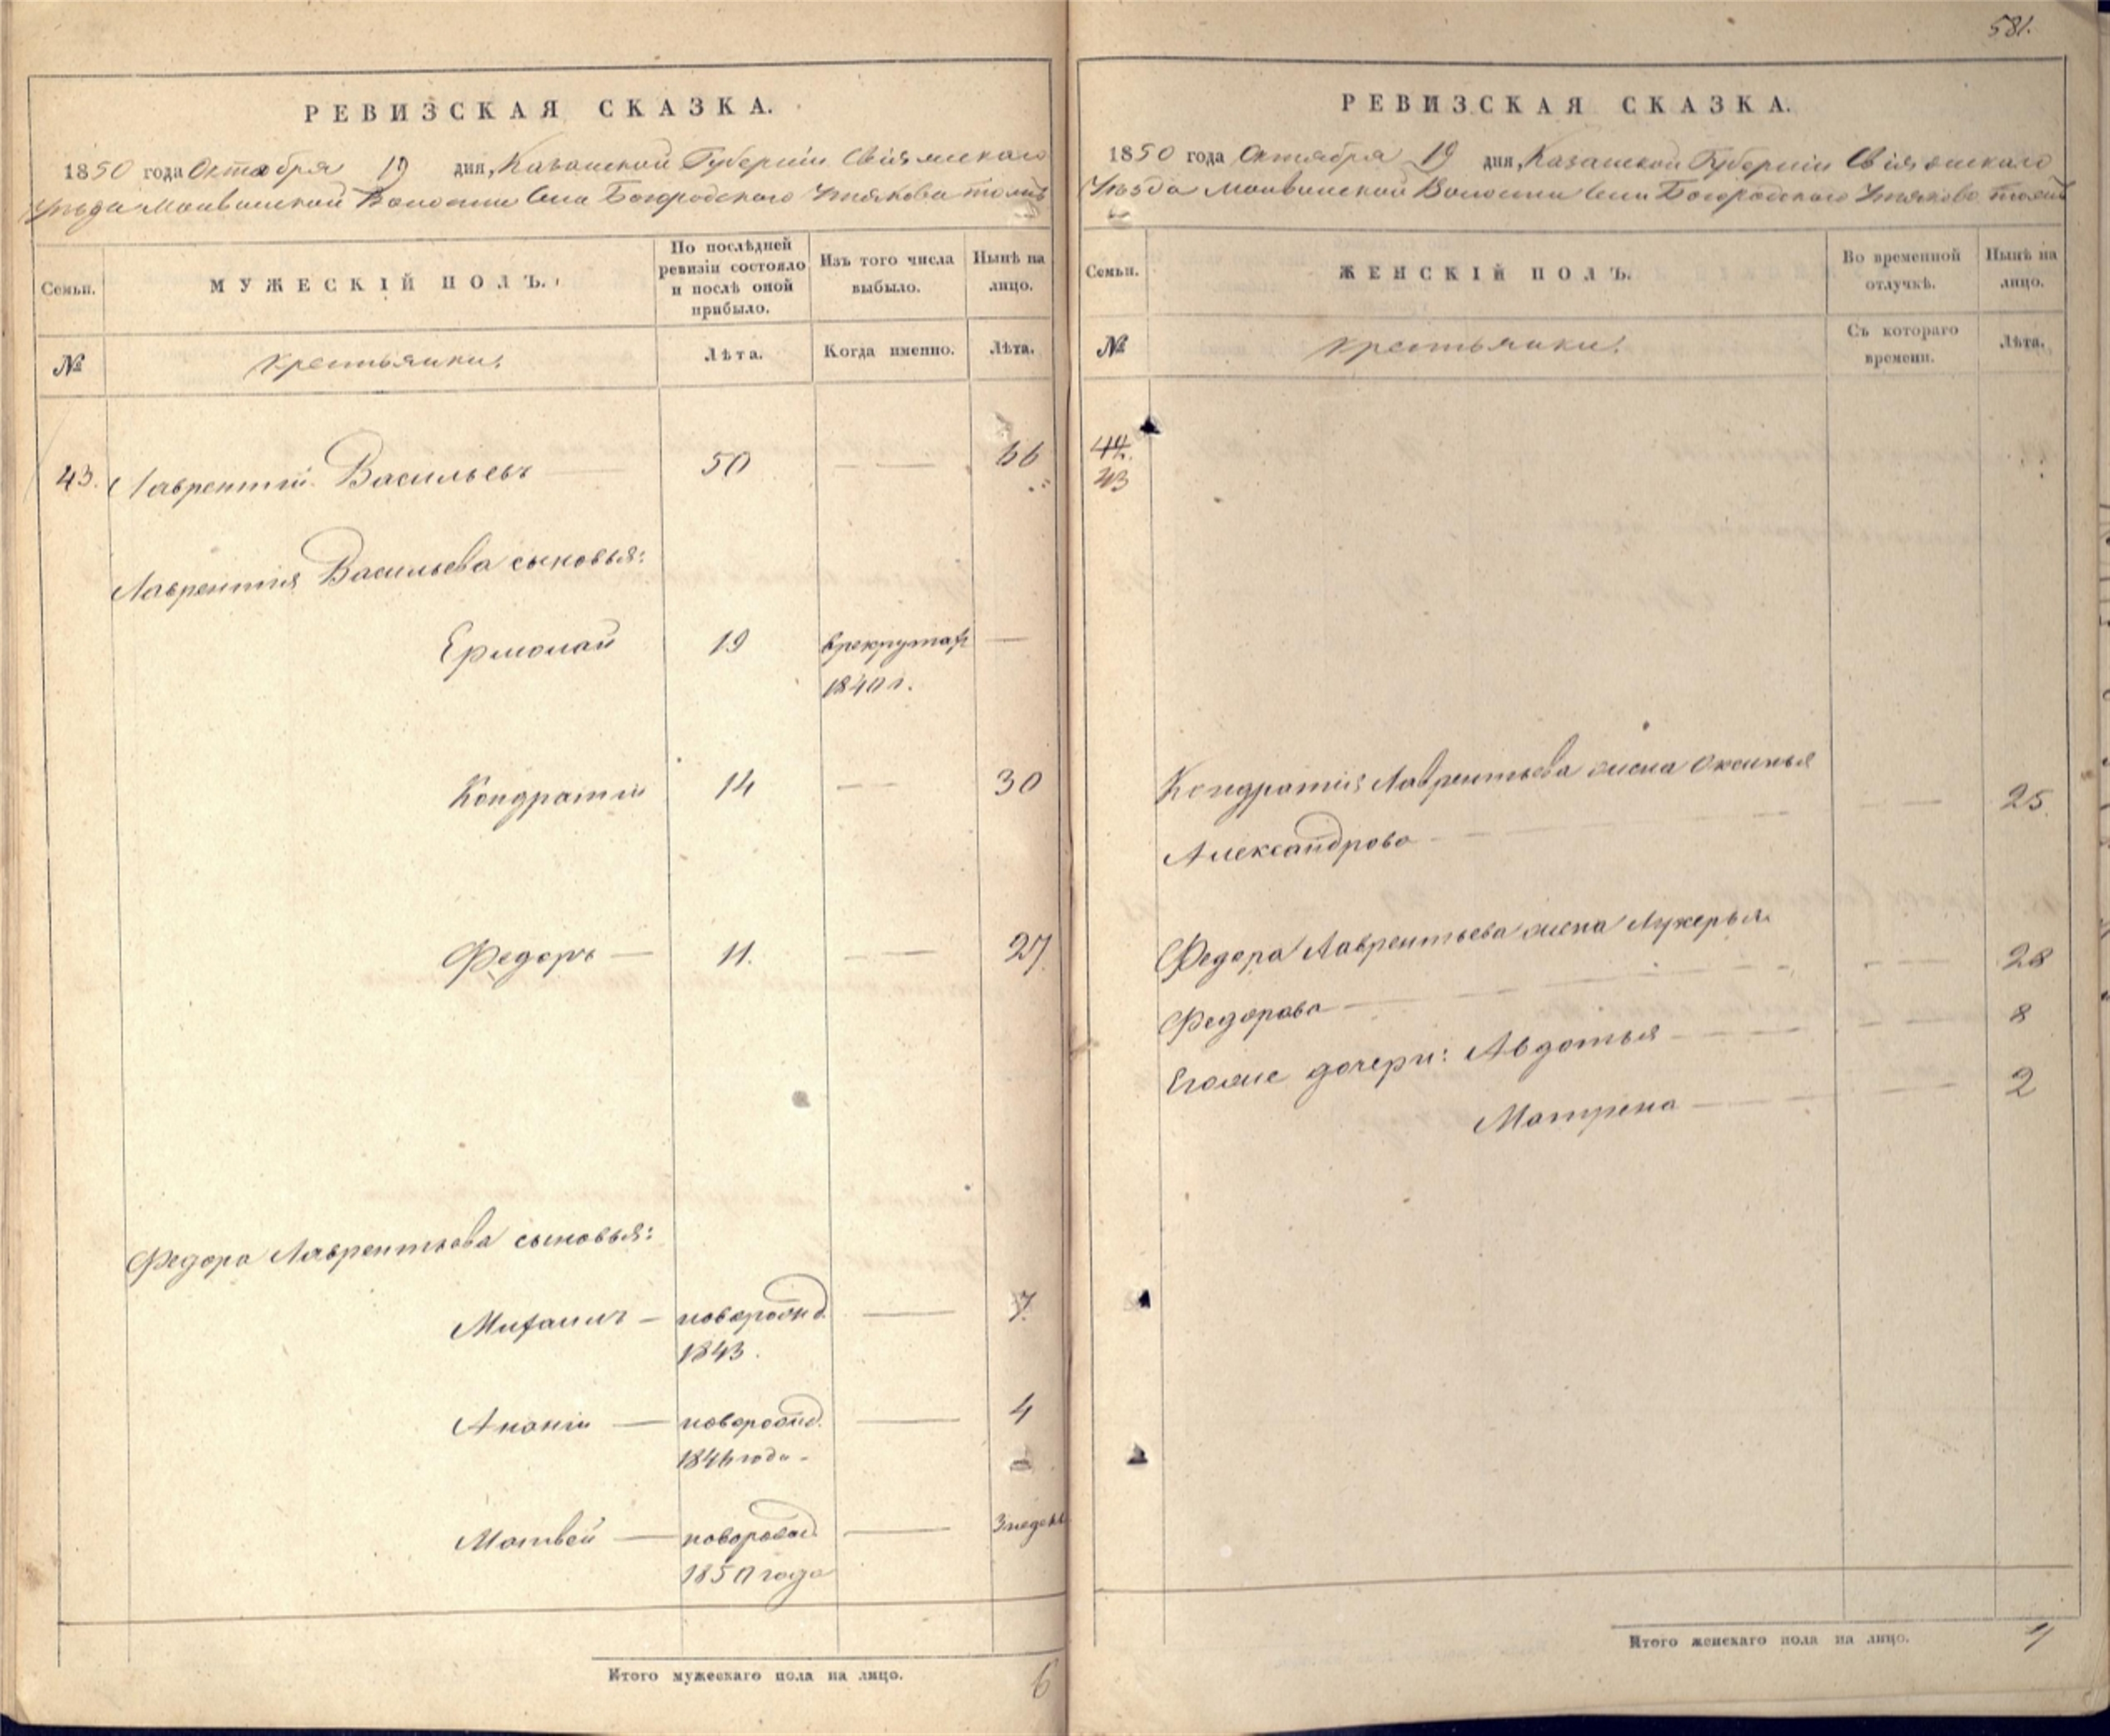 РЕВИЗСКАЯ СКАЗКА.
1850 года Октября 19 дня, Казанской Губерніи Свіяжскаго
Уѣзда Волости Села Богородскаго Утякова тожъ
Семьи.
МУЖЕСКІЙ ПОЛЪ.
По послѣдней
ревизіи состояло
и послѣ оной
прибыло.
Изъ того числа
выбыло.
Нынѣ на
лицо.
№
крестьяния
Лѣта.
Когда именно.
Лѣта.
43. Лаврентій Васильевъ 50 — — 66
Лаврентія Васильева сыновья:
Ермолай 19 в рекрутах —
1840 г.
Кондратій 14 — — 30
Федоръ — 11. — — 27
Федора Лаврентьева сыновья:
Михаилъ — новорожд. — 7
1843.
Ананій — новорожд. — 4
1846 года
Матвей — новорожд. — 3 недели
1850 года
Итого мужескаго пола на лицо. 6
581.
РЕВИЗСКАЯ СКАЗКА.
1850 года Октября 19 дня, Казанской Губерніи Свіяжскаго
Уѣзда Волости Села Богородскаго Утяково тожъ
Семьи.
ЖЕНСКІЙ ПОЛЪ.
Во временной
отлучкѣ.
Нынѣ на
лицо.
№
крестьянки.
Съ котораго
времени.
Лѣта.
44.
43
Кондратія Лаврентьева жена Оксинья
Александрова — — — 25
Федора Лаврентьева жена Лукерья
Федорова — — — 28
Егоже дочери: Авдотья — — — 8
Матрена — — — 2
Итого женскаго пола на лицо. 4